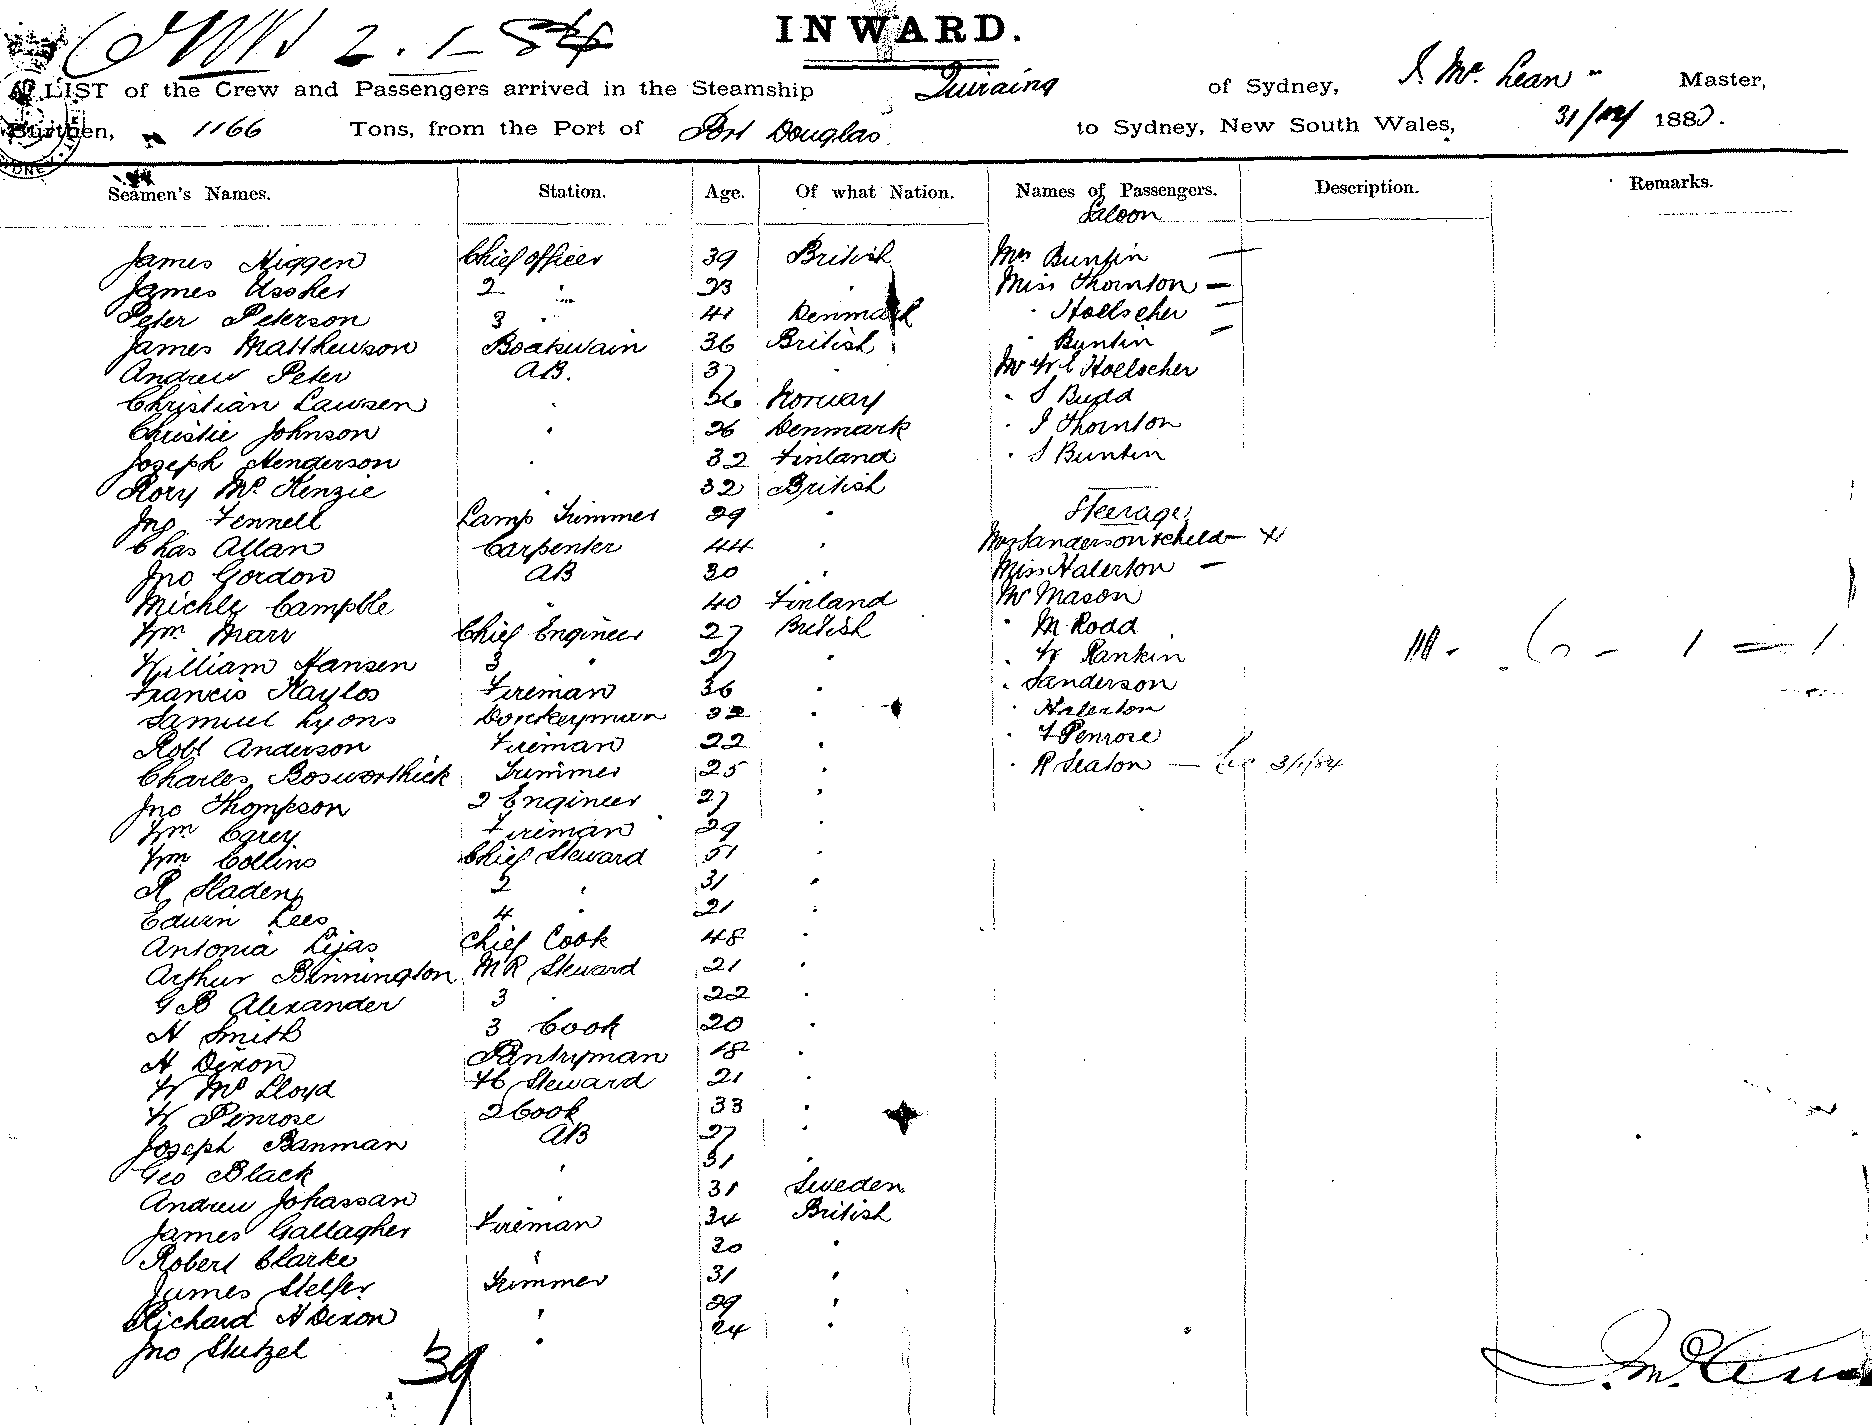 2.1.84
INWARD.
A LIST of the Crew and Passengers arrived in the Steamship Quiraing of Sydney, J Mc Lean Master,
Burthen, 1166 Tons, from the Port of Port Douglas to Sydney, New South Wales, 31/12/ 1883.
Seamen's Names. Station. Age. Of what Nation. Names of Passengers. Description. Remarks.
Saloon
James Higgen Chief officer 39 British Mrs Buntin —
James Ussher 2 " 23 " Miss Thornton —
Peter Peterson 3 " 41 Denmark " Hoelscher —
James Matthewson Boatswain 36 British " Buntin —
Andrew Peter AB. 37 " Mr W E Hoelscher
Christian Lawsen " 36 Norway " S Budd
Christie Johnson " 26 Denmark " J Thornton
Joseph Henderson " 32 Finland " S Buntin
Rory Mc Kenzie " 32 British
Jno Fennell Lamp Trimmer 29 " Steerage
Chas Allan Carpenter 44 " Mrs Sanderson & child —
Jno Gordon AB 30 " Miss Halerton —
Michle Campble " 40 Finland Mr Mason
Wm Marr Chief Engineer 27 British " M Rodd
William Hansen 3 " 27 " " W Rankin
Francis Kaylos Fireman 36 " " Sanderson
Samuel Lyons Donkeyman 32 " " Halerton
Robt Anderson Fireman 22 " " F Penrose
Charles Bosworthick Trimmer 25 " " R Seaton — 3/1/84
Jno Thompson 2 Engineer 27 "
Wm Carey Fireman 29 "
Wm Collins Chief Steward 51 "
R Sladen 2 " 31 "
Edwin Lees 4 " 21 "
Antonia Lijas Chief Cook 48 "
Arthur Binnington MR Steward 21 "
G B Alexander 3 " 22 "
H Smith 3 Cook 20 "
H Dixon Pantryman 18 "
W Mc Lloyd FC Steward 21 "
W Penrose 2 Cook 33 "
Joseph Banman AB 27 "
Geo Black " 31 "
Andrew Johassan " 31 Sweden
James Gallagher Fireman 34 British
Robert Clarke " 30 "
James Stelfer Trimmer 31 "
Richard H Dixon " 29 "
Jno Stutzel " 24 "
39
J McLean